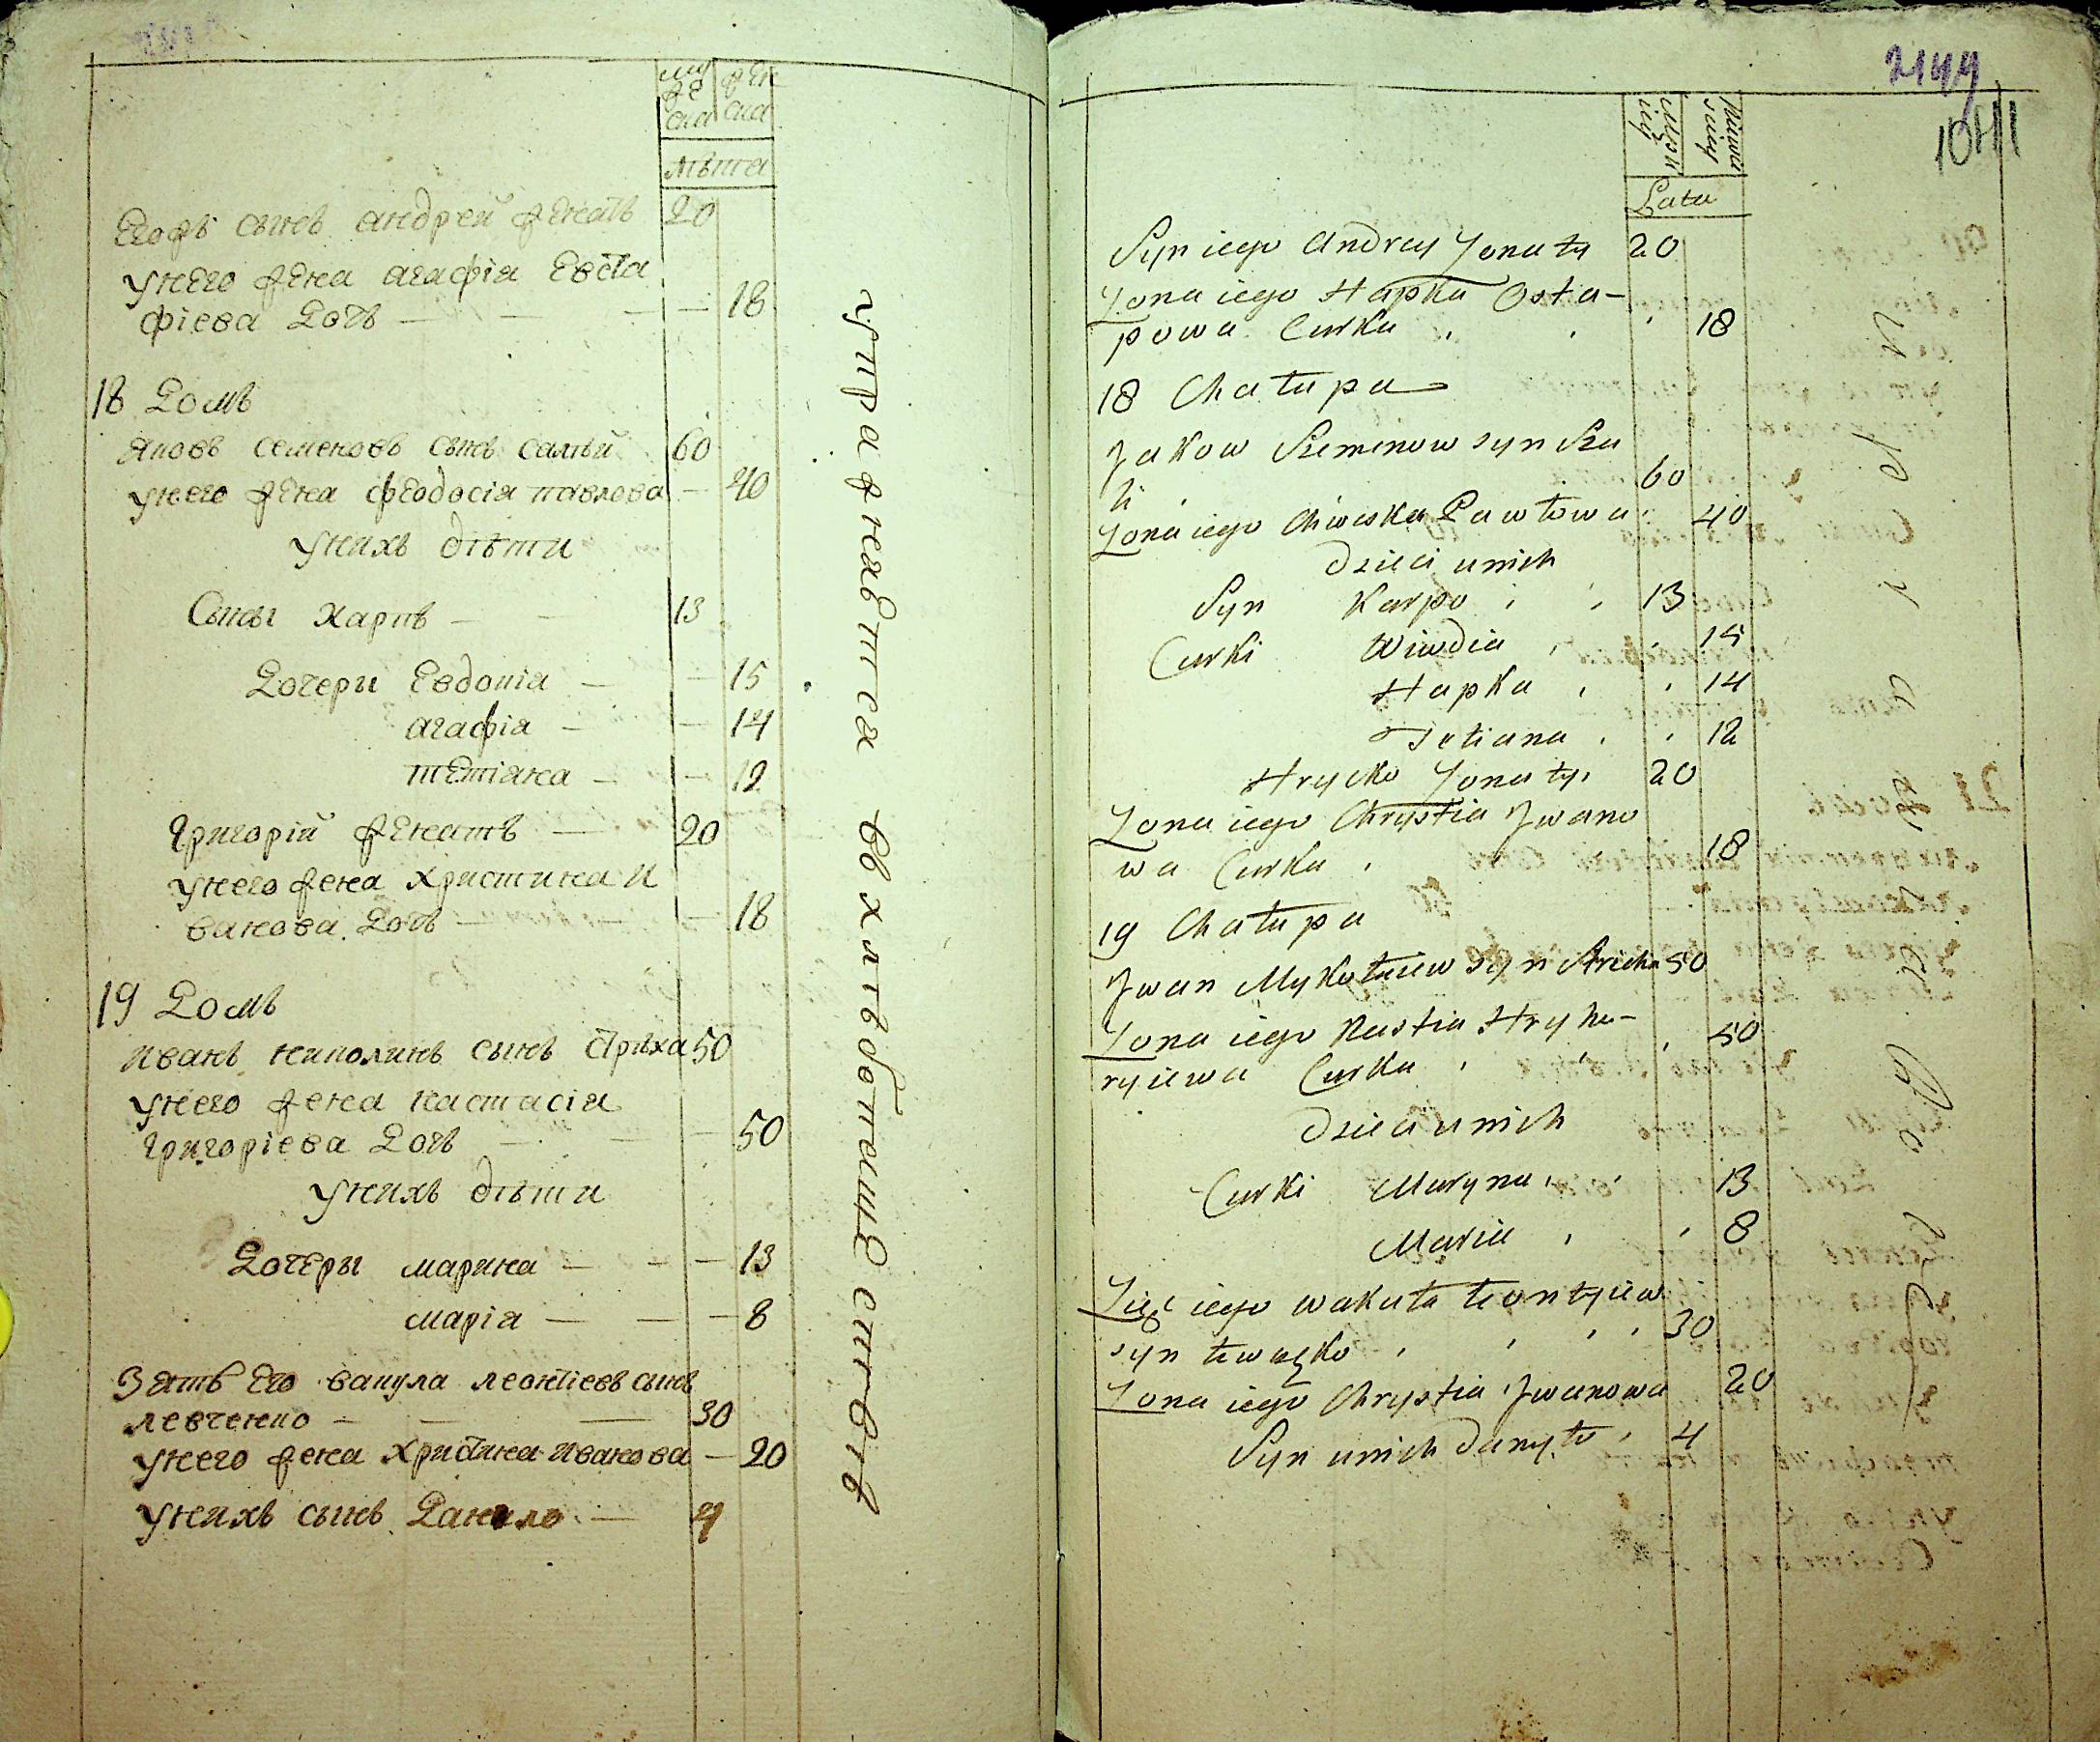 му
же
ска
жен
ска
лѣта
Его синъ андрей женатъ 20
унего жена агафія Евста
фіева Дочь — — — 18
18 Домъ
яковъ семеновъ сынъ Салѣй 60
унего жена феодосія павлова — 40
унихъ дѣти
Сыны харпъ — 13
Дочери Евдокія — — 15
агафія — — 14
тетіана — — 12
григорій женатъ — 20
унего жена христина и
ванова Дочь — — 18
19 Домъ
иванъ николинъ сынъ стрѣха 50
унего жена настасія
григоріева Дочь — — — 50
унихъ дѣти
Дочеры марина — — — 13
марія — — — 8
Зять Его вакула леонтіевъ сынъ
левченко — — — 30
унего жена христина иванова — 20
унихъ сынъ Данило — 4
2149
1041
Latu
Syn iego Andrey Zonaty 20
Zona iego Hapka Osta-
powa Curka 18
18 Chałupa
Jakow Siemenow syn Sza
li 60
Zona iego Chiweska Pawłowa 40
Dzieci unich
Syn Karpo 13
Curki Wiwdia 15
Hapka 14
Tetiana 12
Hrycko Zonaty 20
Zona iego Chrystia Jwano
wa Curka 18
19 Chałupa
Jwan Mykołaiew syn Stricha 50
Zona iego Nastia Hryho-
ryiewa Curka 50
Dzieci unich
Curki Maryna 13
Maria 8
Zięć iego Wakuła Łeontyiew
syn Łewczko 30
Zona iego Chrystia Jwanowa 20
Syn unich Danyło 4